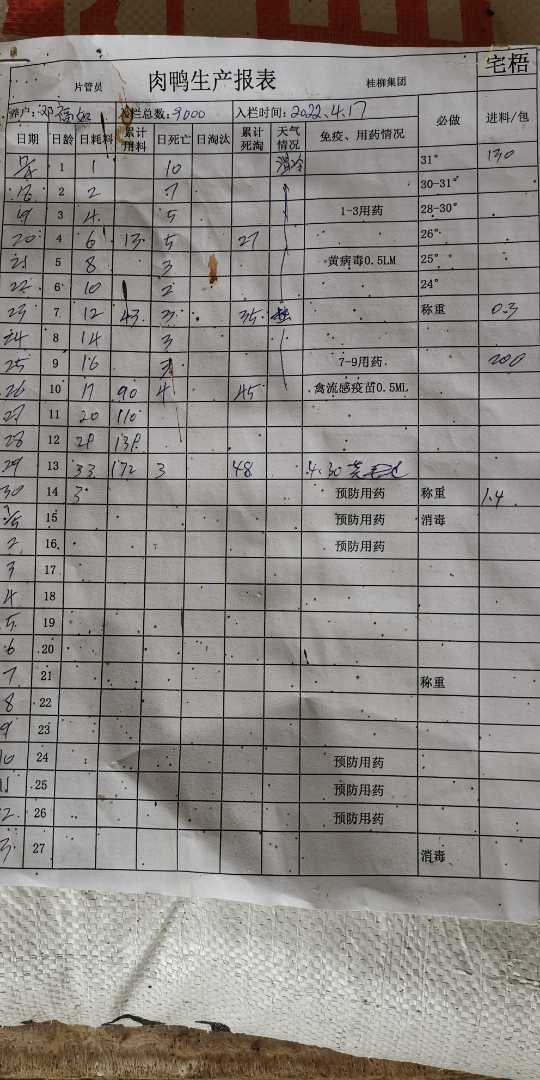 宅梧
片管员 肉鸭生产报表 桂柳集团
养户: 入栏总数:9000 入栏时间:2022.4.17 必做 进料/包
日期 日龄 日耗料 累计用料 日死亡 日淘汰 累计死淘 天气情况 免疫、用药情况
1 1 10 31° 130
18 2 2 7 30-31°
19 3 4 5 1-3用药 28-30°
20 4 6 13 5 27 26°
21 5 8 3 黄病毒0.5LM 25°
22 6 10 2 24°
23 7 12 43 3 35 称重 0.3
24 8 14 3
25 9 16 7-9用药 200
26 10 17 90 4 45 禽流感疫苗0.5ML
27 11 20 110
28 12 29 139
29 13 33 172 3 48 4.30
30 14 3 预防用药 称重 1.4
15 预防用药 消毒
2 16 预防用药
3 17
4 18
5 19
6 20
7 21 称重
8 22
9 23
10 24 预防用药
11 25 预防用药
12 26 预防用药
13 27 消毒